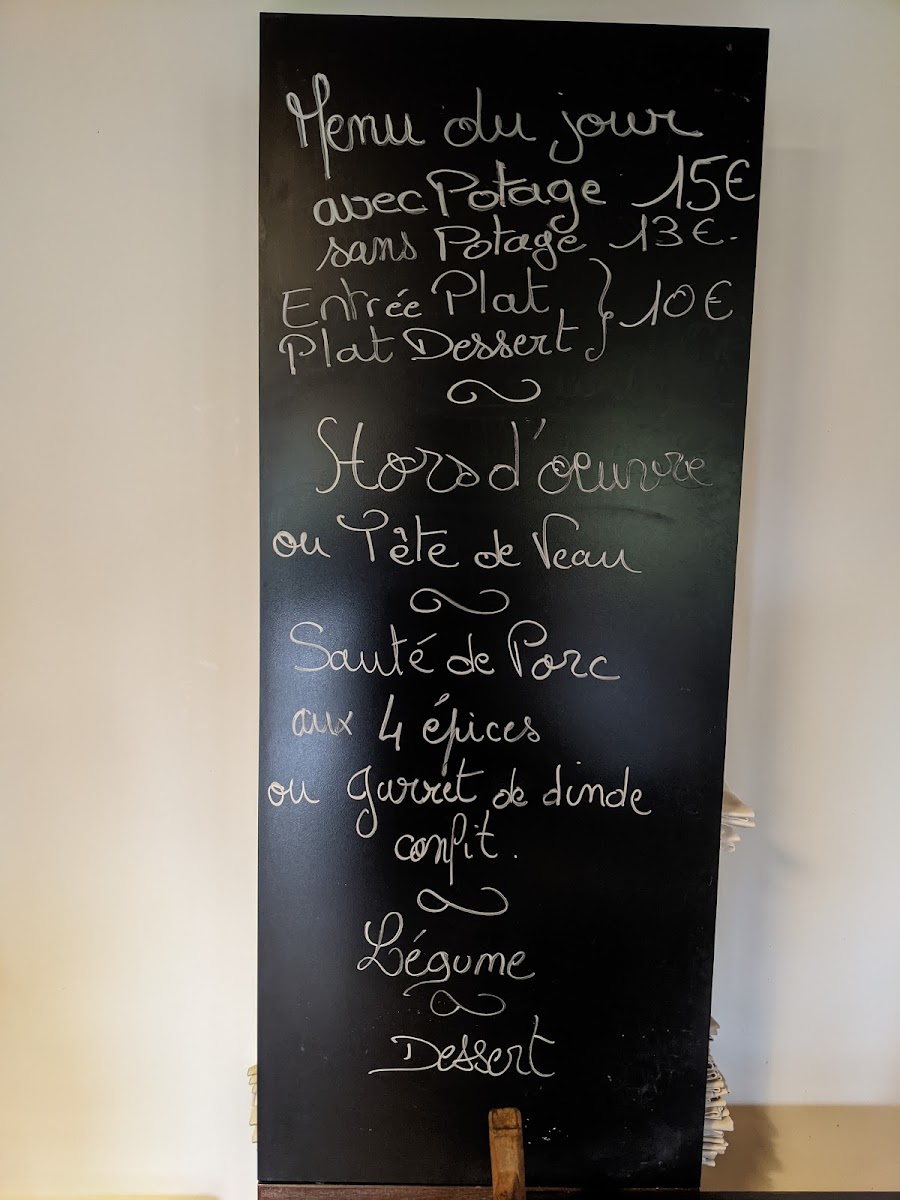 Menu du jour
avec Potage 15€
sans Potage 13€.
Entrée Plat } 10€
Plat Dessert
Hors d'oeuvre
ou Tête de Veau
Sauté de Porc
aux 4 épices
ou garret de dinde
confit.
Légume
Dessert